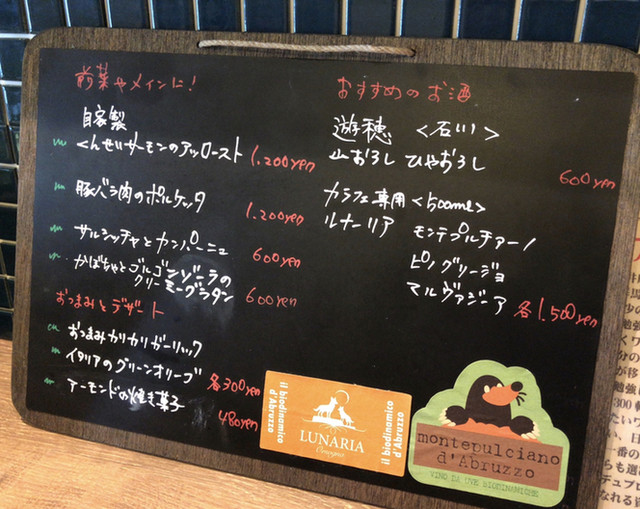 前菜やメインに!
自家製
くんせいサーモンのアッロースト 1.200yen
豚バラ肉のポルケッタ 1.200yen
サルシッチャとカンパーニュ 600yen
かぼちゃとゴルゴンゾーラの
クリーミーグラタン 600yen
おつまみとデザート
おつまみカリカリガーリック
イタリアのグリーンオリーブ 各300yen
アーモンドの焼き菓子 480yen
おすすめのお酒
遊穂 <石川>
山おろし ひやおろし 600yen
カラフェ専用 <500ml>
ルナーリア モンテプルチアーノ
ピノグリージョ
マルヴァジーア 各1.500yen
il biodinamico
d'Abruzzo
LUNARIA
il biodinamico
d'Abruzzo
montepulciano
d'Abruzzo
VINO DA UVE BIODINAMICHE